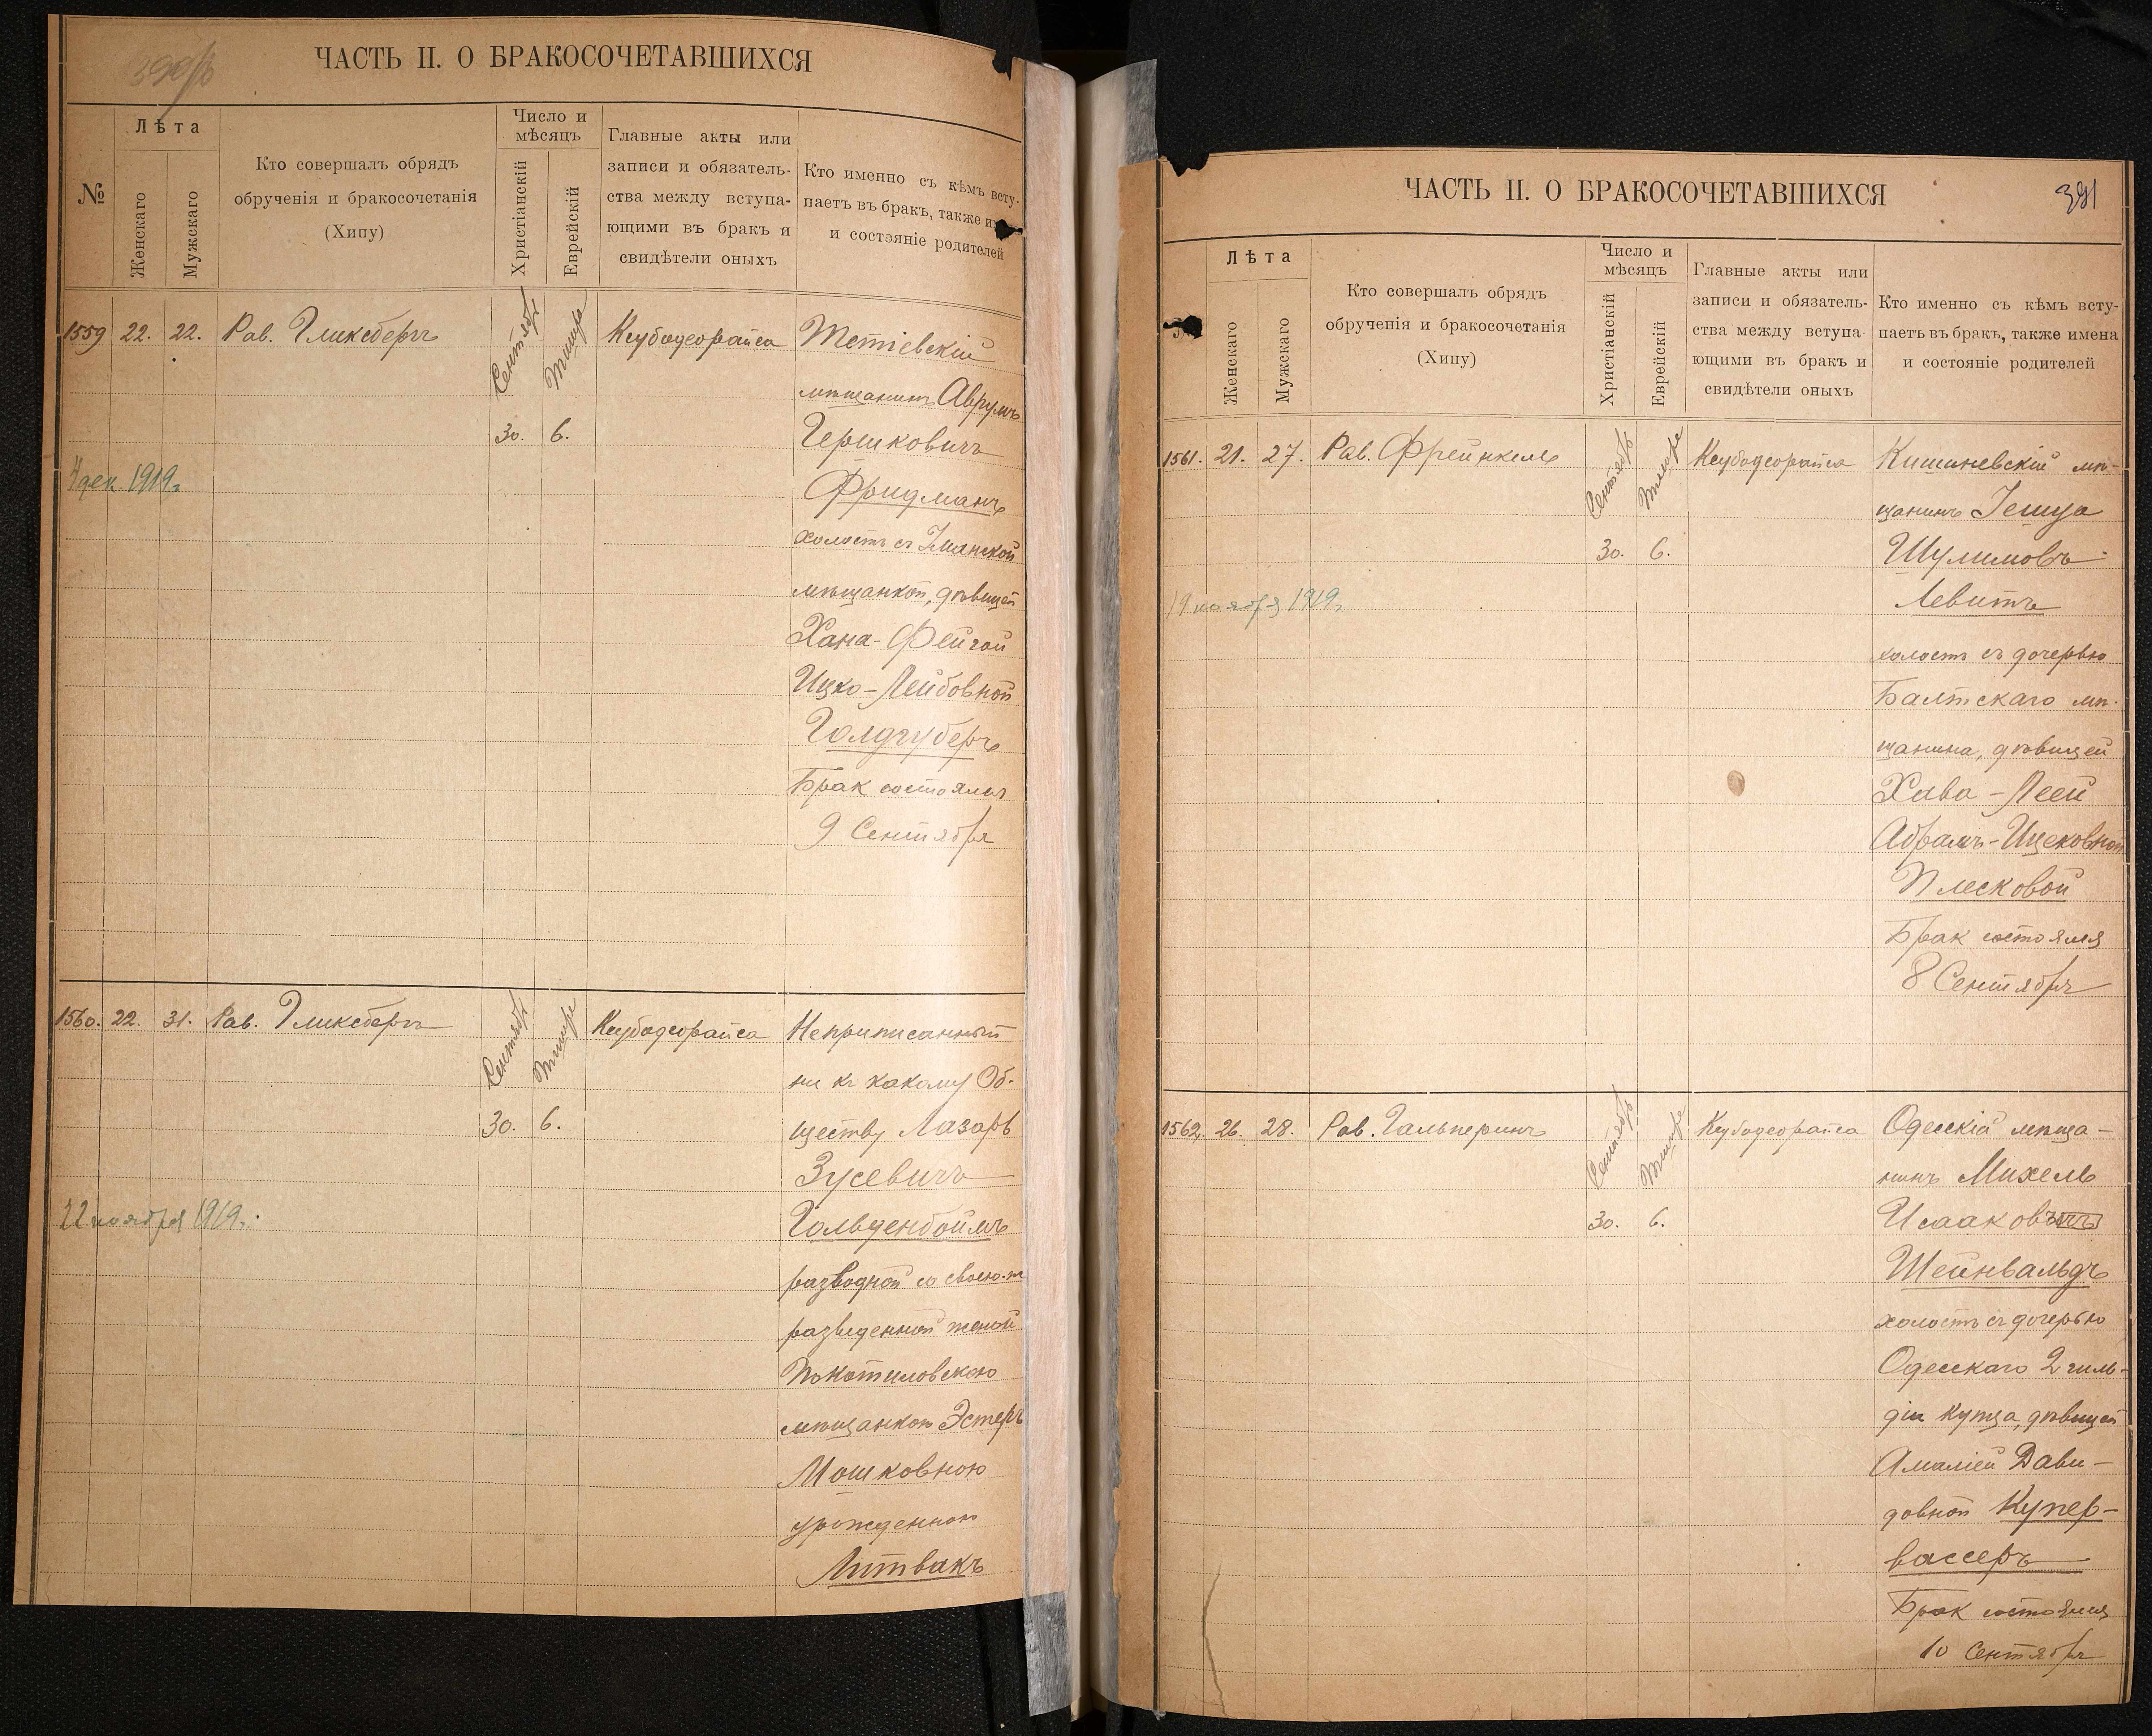 ЧАСТЬ II. О БРАКОСОЧЕТАВШИХСЯ
№
Лѣта
Женскаго
Мужскаго
Кто совершалъ обрядъ
обрученія и бракосочетанія
(Хипу)
Число и
мѣсяцъ
Христіанскій
Еврейскій
Главные акты или
записи и обязатель-
ства между вступа-
ющими въ бракъ и
свидѣтели оныхъ
Кто именно съ кѣмъ всту-
паетъ въ бракъ, также
и состояніе родителей
1559 22. 22. Рав. Гликсбергъ
Сентябрь
Тишре
30. 6.
Кеубодеорайса
4 дек. 1919г.
Тетіевскій
мѣщанинъ Аврумъ
Гершковичъ
Фридманъ
холостъ съ Уманской
мѣщанкой, дѣвицей
Хана-Фейгой
Ицко-Лейбовной
Голдгуберъ
Брак состоялся
9 Сентября
1560. 22. 31. Рав. Гликсбергъ
Сентябрь
Тишре
30. 6.
Кеубодеорайса
22 ноября 1919г.
Неприписанный
ни къ какому Об-
ществу Лазарь
Зусевичъ
Гольденбоймъ
разводной со своею-ж
разведенной женой
Покотиловскою
мѣщанкою Эстеръ
Мошковною
урожденною
Литвакъ
ЧАСТЬ II. О БРАКОСОЧЕТАВШИХСЯ
391
Лѣта
Женскаго
Мужскаго
Кто совершалъ обрядъ
обрученія и бракосочетанія
(Хипу)
Число и
мѣсяцъ
Христіанскій
Еврейскій
Главные акты или
записи и обязатель-
ства между вступа-
ющими въ бракъ и
свидѣтели оныхъ
Кто именно съ кѣмъ всту-
паетъ въ бракъ, также имена
и состояніе родителей
1561. 21. 27. Рав. Фрейнкель
Сентябрь
Тишре
30. 6.
Кеубодеорайса
19 ноября 1919г.
Кишиневскій мѣ-
щанинъ Іешуа
Шулимовъ
Левитъ
холостъ съ дочерью
Балтскаго мѣ-
щанина, дѣвицей
Хава-Леей
Абрамъ-Ицековной
Плесковой
Брак состоялся
8 Сентября
1562. 26. 28. Рав. Гальперинъ
Сентябрь
Тишре
30. 6.
Кеубодеорайса
Одесскій мѣща-
нинъ Михель
Исааковъ
Шейнвальдъ
холостъ съ дочерью
Одесскаго 2 гиль-
діи купца, дѣвицей
Амаліей Дави-
довной Купер-
вассеръ
Брак состоялся
10 Сентября